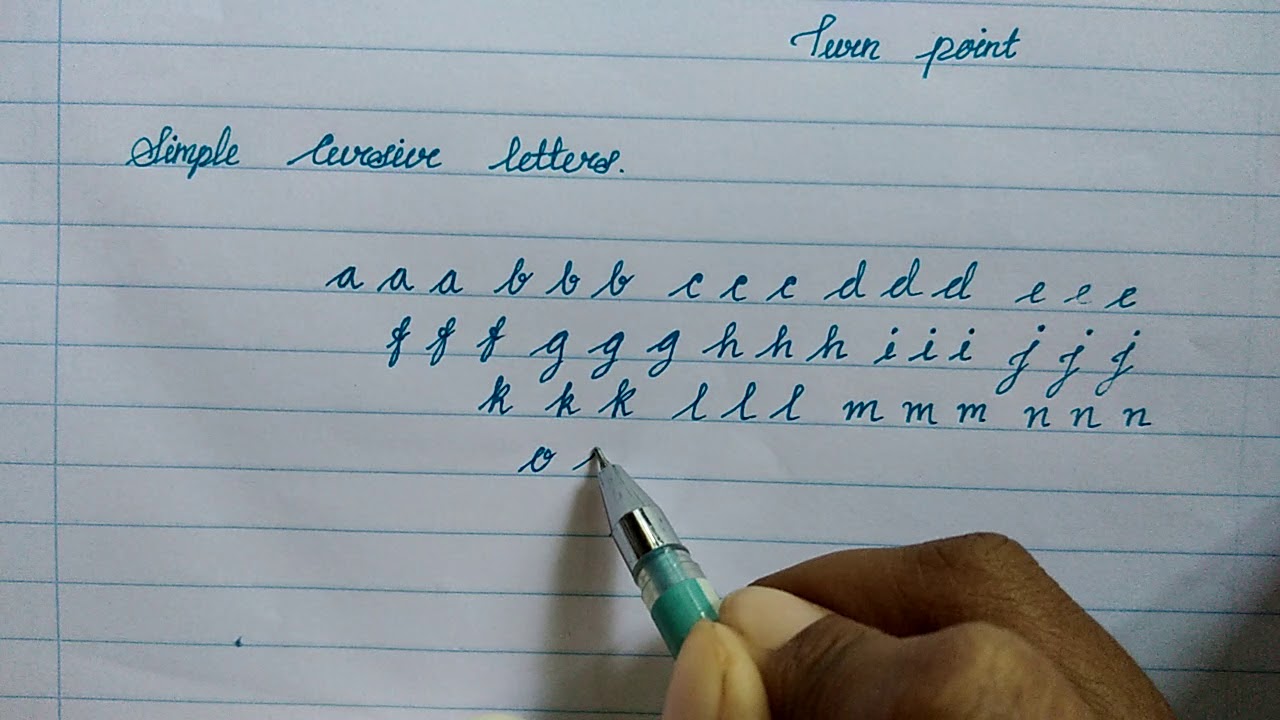 Turn point
Simple Cursive letters.
a a a b b b c c c d d d e e e
f f f g g g h h h i i i j j j
k k k l l l m m m n n n
o